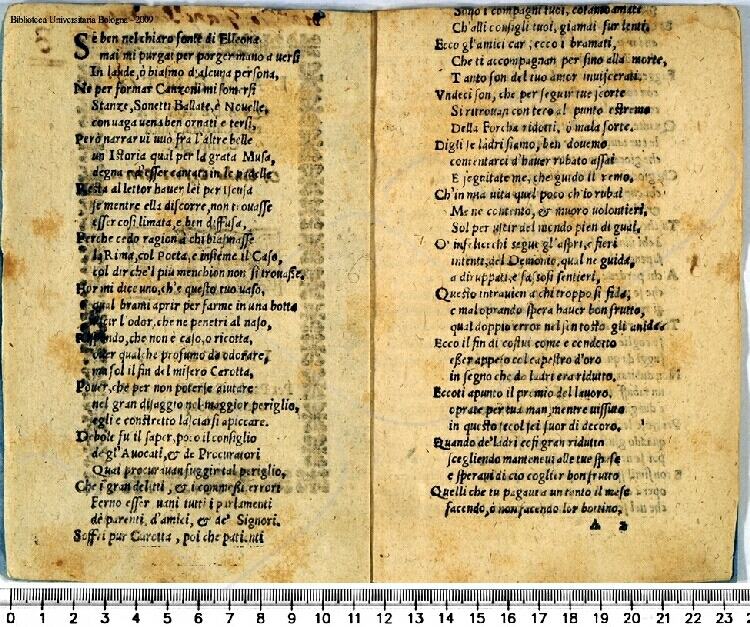 Biblioteca Universitaria Bologna - 2009
SE ben nel chiaro fonte di Elleona
mai mi purgai per porger mano a versi
In laude, ò biasmo d'alcuna persona,
Ne per formar Canzoni mi somersi
Stanze, Sonetti Ballate, è Nouelle,
con uaga uena ben ornati e tersi,
Però narrar ui uuò fra l'altre belle
un Istoria qual per la grata Musa,
degna è d'esser cantata in le
Resta al lettor hauer lei per iscusa
se mentre ella discorre, non trouasse
esser cosi limata, e ben diffusa,
Perche cedo ragion à chi biasmasse
la Rima, col Poeta, e insieme il Caso,
col dir che'l più menchion non si trouasse.
Hor mi dice uno, ch'è questo tuo uaso,
qual brami aprir per farme in una botta
uscir l'odor, che ne penetri al naso,
Rispondo, che non è caso, o ricotta,
ouer qualche profumo da odorare,
ma sol il fin del misero Carotta,
Pouer, che per non poterse aiutare
nel gran disaggio nel maggior periglio,
egli è constretto lasciarsi apiccare.
Debole fu il saper, poco il consiglio
degl'Auocati, & de Procuratori
Quai procurauan fuggir tal periglio,
Che i gran delitti, & i commessi errori
Ferno esser uani tutti i parlamenti
de parenti, d'amici, & de' Signori.
Soffri pur Carotta, poi che patienti
Sono i compagni tuoi, cotanto amati
Ch'alli consigli tuoi, giamai fur lenti.
Ecco gl'amici car, ecco i bramati,
Che ti accompagnan per sino alla morte,
Tanto son del tuo amor inuiscerati.
Vndeci son, che per seguir tue scorte
Si ritrouan con teco al punto estremo
Della Forcha ridotti, ò mala sorte.
Digli se ladri siamo, ben douemo
contentarci d'hauer rubato assai
E seguitate me, che guido il remo.
Ch'in mia uita quel poco ch'io rubai
Me ne contento, & muoro uolontieri,
Sol per uscir del mondo pien di guai.
O' infelici che segue gl'aspri, e fieri
intenti, del Demonio, qual ne guida,
a dirupati, e sassosi sentieri,
Questo intrauien a chi troppo si fida,
e mal oprando spera hauer bon frutto,
qual doppio error nel sen tosto gli anida.
Ecco il fin di costui come è condotto
esser appeso col capestro d'oro
in segno che de ladri era ridutto.
Eccoti apunto il premio del lauoro,
oprate per tua man, mentre uissuto
in questo secol sei fuor di decoro.
Quando de' Ladri e si gran ridutto
scegliendo manteneui alle tue spese
e speraui di cio coglier bon frutto
Quelli che tu pagaua un tanto il mese
facendo, ò non facendo lor bottino,
A 2
0 1 2 3 4 5 6 7 8 9 10 11 12 13 14 15 16 17 18 19 20 21 22 23